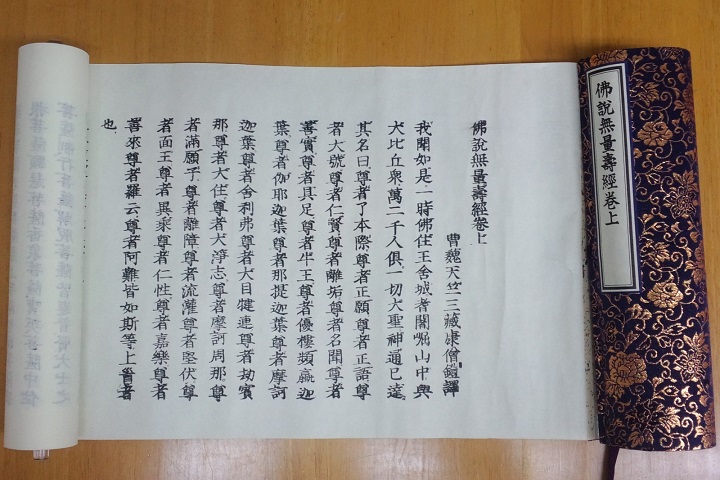 佛說無量壽經卷上
佛說無量壽經卷上
曹魏天竺三藏康僧鎧譯
我聞如是一時佛住王舍城耆闍崛山中與
大比丘衆萬二千人俱一切大聖神通已達
其名曰尊者了本際尊者正願尊者正語尊
者大號尊者仁賢尊者離垢尊者名聞尊者
善實尊者具足尊者牛王尊者優樓頻蠃迦
葉尊者伽耶迦葉尊者那提迦葉尊者摩訶
迦葉尊者舍利弗尊者大目犍連尊者劫賓
那尊者大住尊者大淨志尊者摩訶周那尊
者滿願子尊者離障尊者流離尊者堅伏尊
者面王尊者異乘尊者仁性尊者嘉樂尊者
善來尊者羅云尊者阿難皆如斯等上首者
也